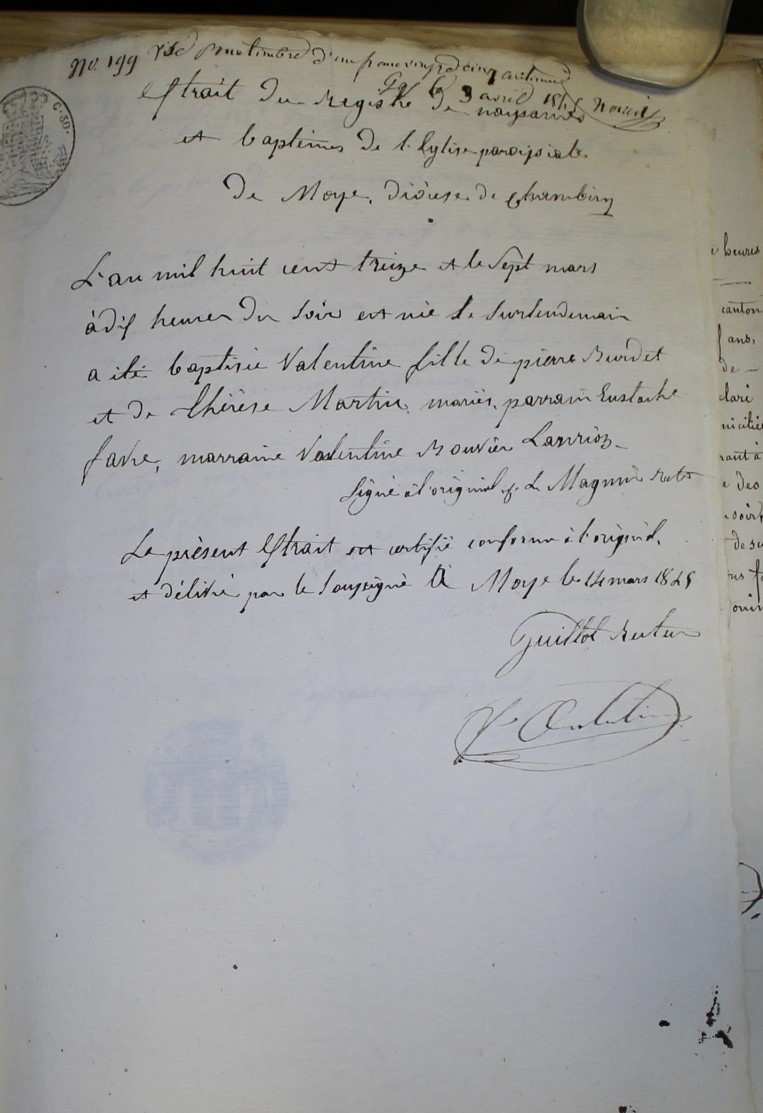 No. 199 visé pour timbre d'un franc vingt cinq centimes
Gex le 3 avril
Extrait du Registre de naissances
C. 50.
et baptêmes de l'Eglise paroissiale
De Moye, diocèse de Chambéry
L'an mil huit cent treize et le sept mars
à dix heures du soir est née & le surlendemain
a été baptisée Valentine fille de pierre Burdet
et de Thérèse Martin, mariés, parrain Eustache
favre, marraine Valentine Bouvier
Signé à l'original Magnin
Le présent Extrait est certifié conforme à l'original,
et délivré par le Soussigné à Moye le 14 mars 1845
Guillot Recteur
i heures
canton
ans,
de —
claré
rant à
e des
soir
de su